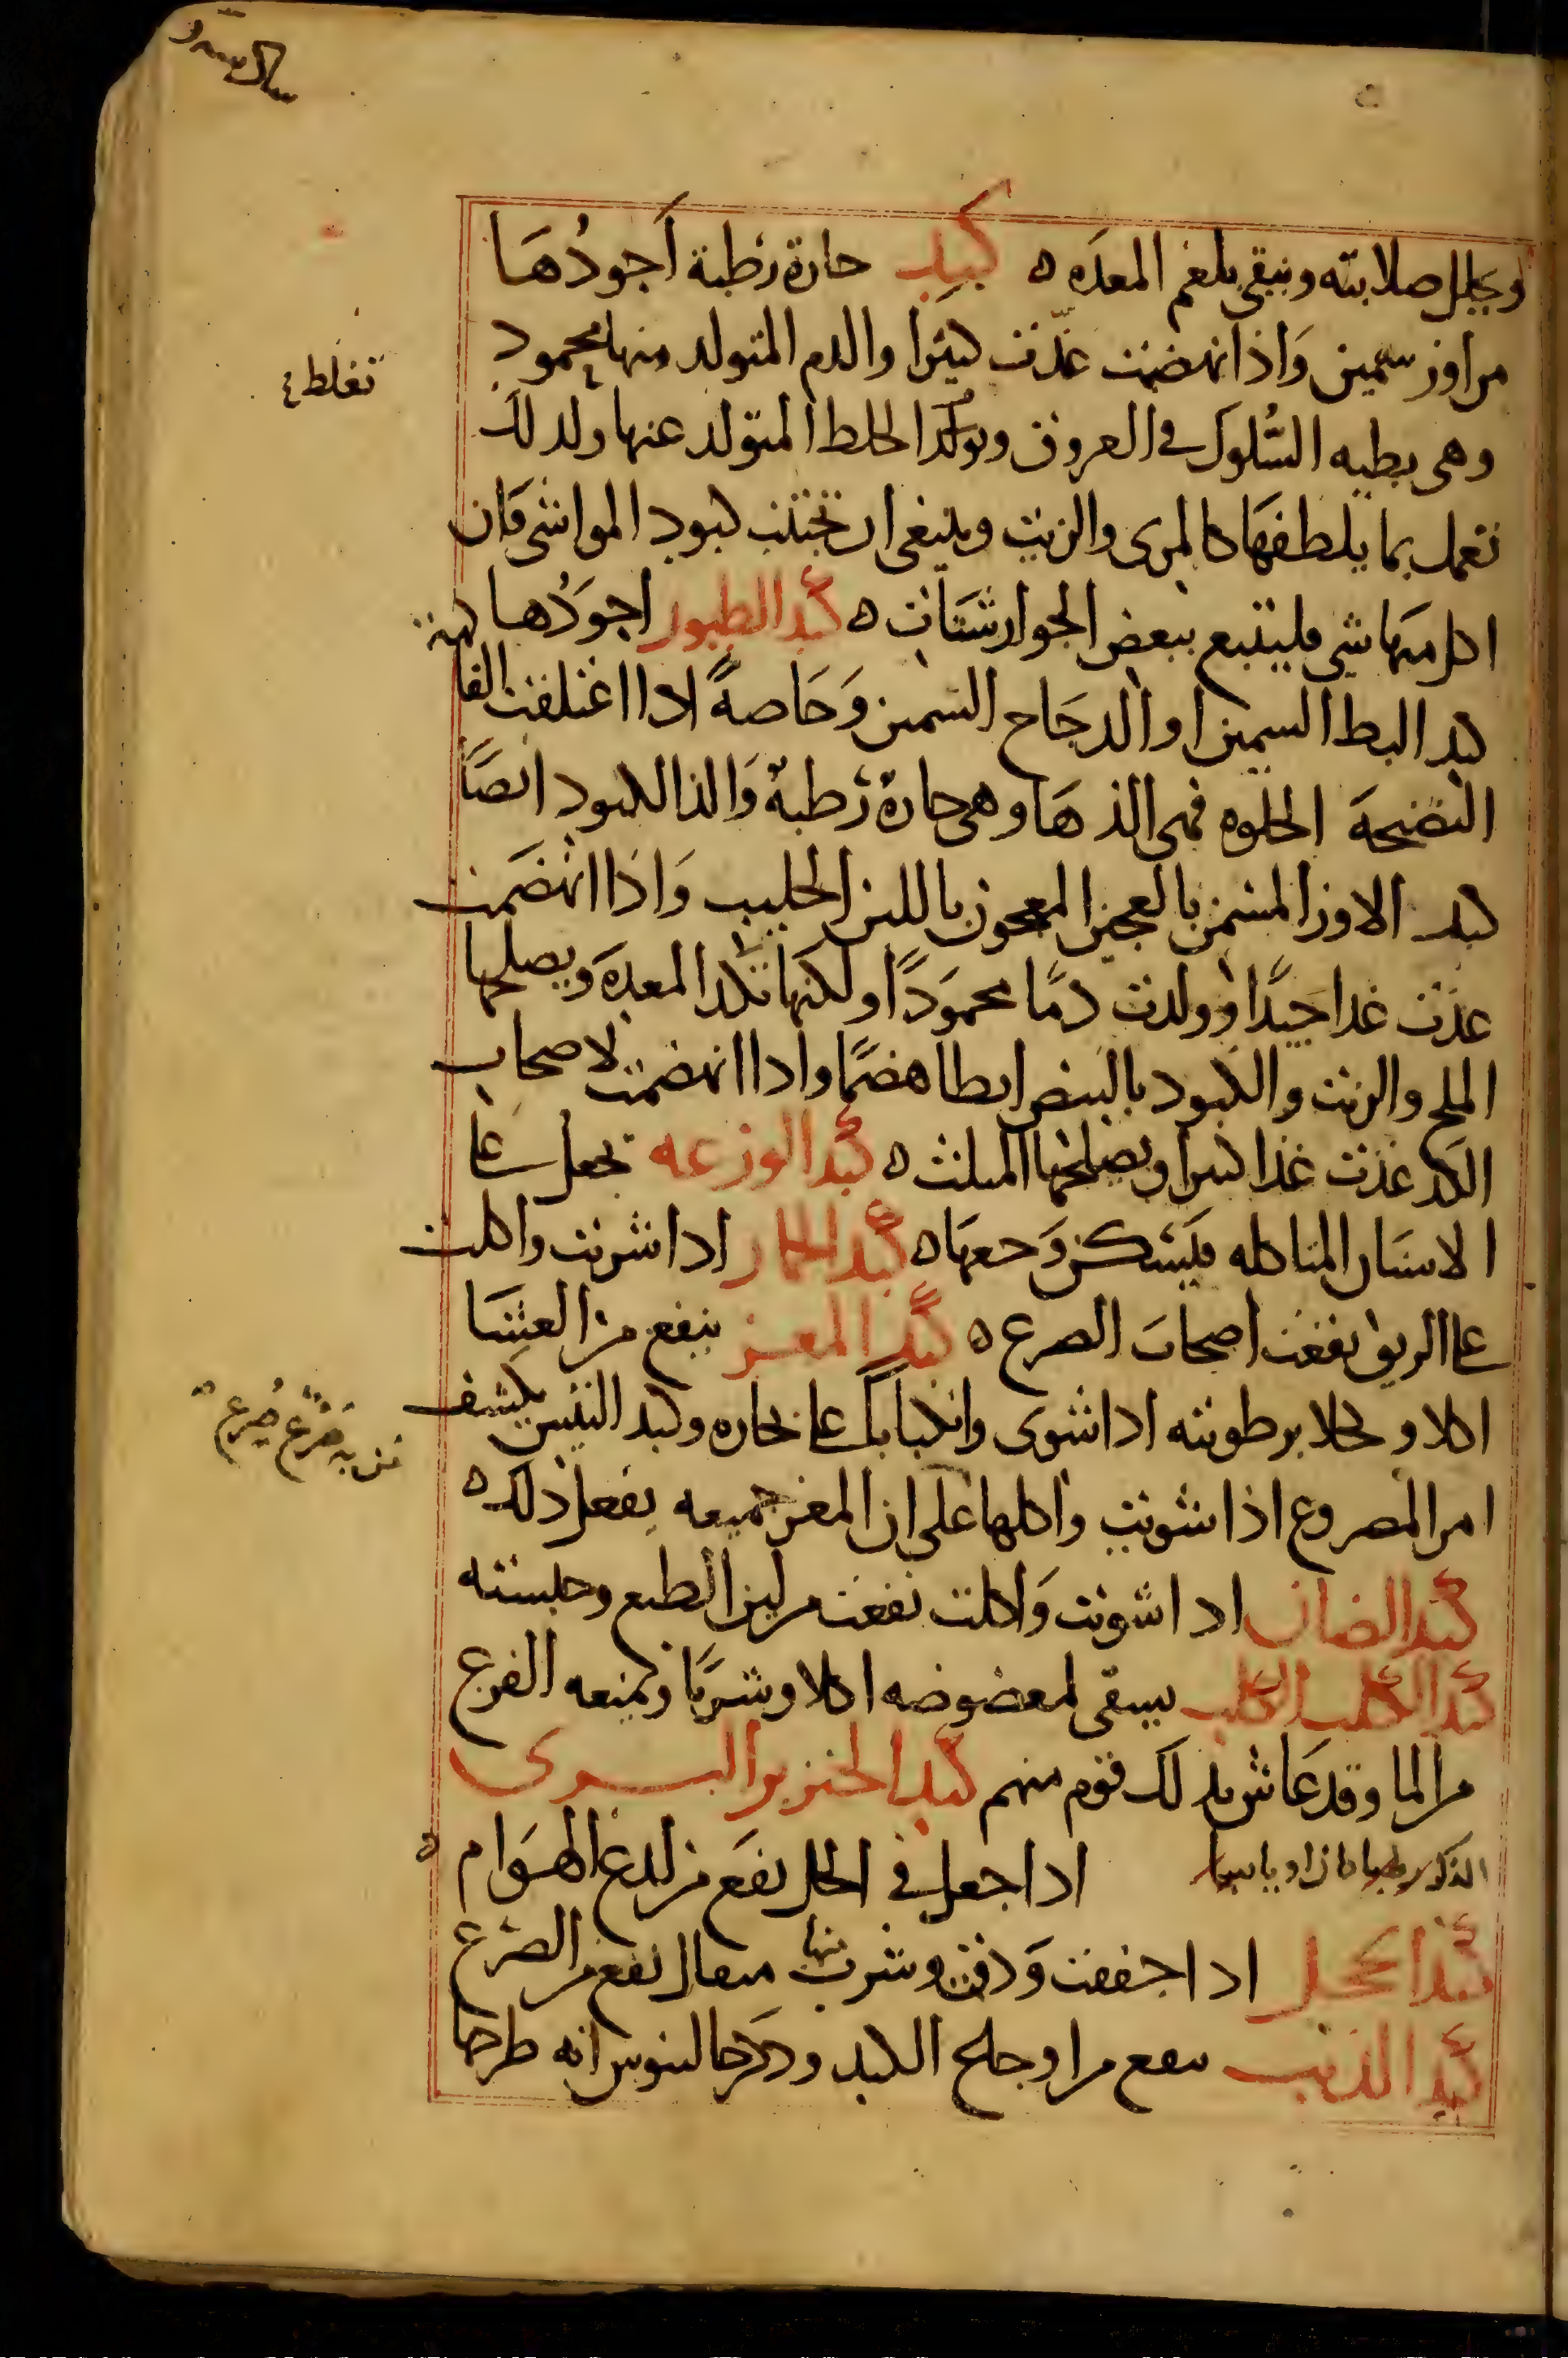 ويحلل صلابته وينقي بلغم المعده ه كبد حارة رطبة أجودُهَا
من اوز سمين وَاذا انهضمت غذّت كثيرا والدم المتولد منها محمود
تغلط
وهى بطيه السُّلوك فى العروق الخلط المتولد عنها ولذلك
تعمل بما يلطفهَا كالمرى والزيت وينبغى ان تجتنب كبود المواشى فان
اكل منها شى فليتبع ببعض الجوارشنات ه كبد الطيور اجوَدُها
كبد البط السمين او الدجَاج السمين وَخَاصةً اذا اغتلفت
النضيجة الحلوه فهى الذهَا وهى حارة رَطبة وَالذ الكبود ايضًا
كبد الاوز المسمن بالعجين المعجون باللبن الحليب وَاذا انهضَمت
غذت غذا جيدًا وولدت دمًا محموَدًا ولكنهَا المعدَه ويصلحها
الملح والزيت والكبود بالبيض ابطا هضمًا واذا انهضمت لاصحاب
الكد غذت غذا كثيرا ويصلحها المثلث ه كبد الوزغه تجعل على
الاسنَان المتاكله فيَسكن وَجعهَا ه كبد الحمار اذا شويت واكلت
على الريق نفعت اصحابَ الصرع ه كبد المعز ينفع من العشَا
اكلا وكحلا برطوبته اذا شوى وانكبابًا على بخاره وكبد التيس يكشف
امر المصروع اذا شويت واكلها على ان المعز جميعه يفعل ذلك ه
كبد الضان اذا شويت وَاكلت نفعت من لين الطبع وحبسته
كبد الكلب الكلب يسقى لمعضوضه اكلا وشربًا ويمنعه الفزع
من الما وقد عَاش بذلك قوم منهم كبد الخنزير البرى
الذكر رطبا كان او يابسا اذا جعل فى الخل نفع من لدغ الهوَام ه
اذا جففت وَدقت وشرب منها مثقال نفع من الصرع
كبد الذيب ينفع من اوجاع الكبد وذكر جالينوس انه طرحها